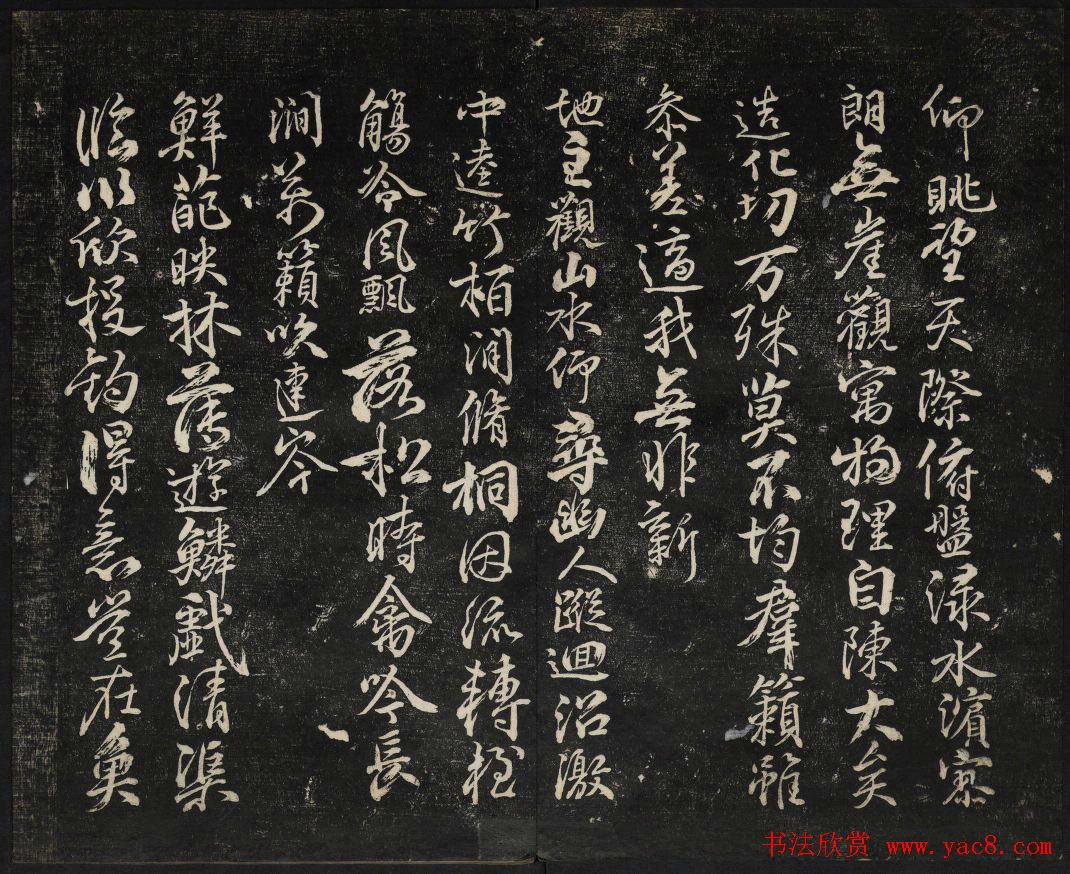 仰眺望天際俯盤淥水濱寥
朗無崖觀寓物理自陳大矣
造化切万殊莫不均羣籟雖
參差適我無非新
地主觀山水仰尋幽人蹤迴沼激
中逵竹柏間脩桐因流轉輕
觴冷風飄落松時禽吟長
澗萬籟吹連岑
鮮葩映林薄遊鱗戲清渠
臨川欣投釣得意豈在魚
书法欣赏 www.yac8.com